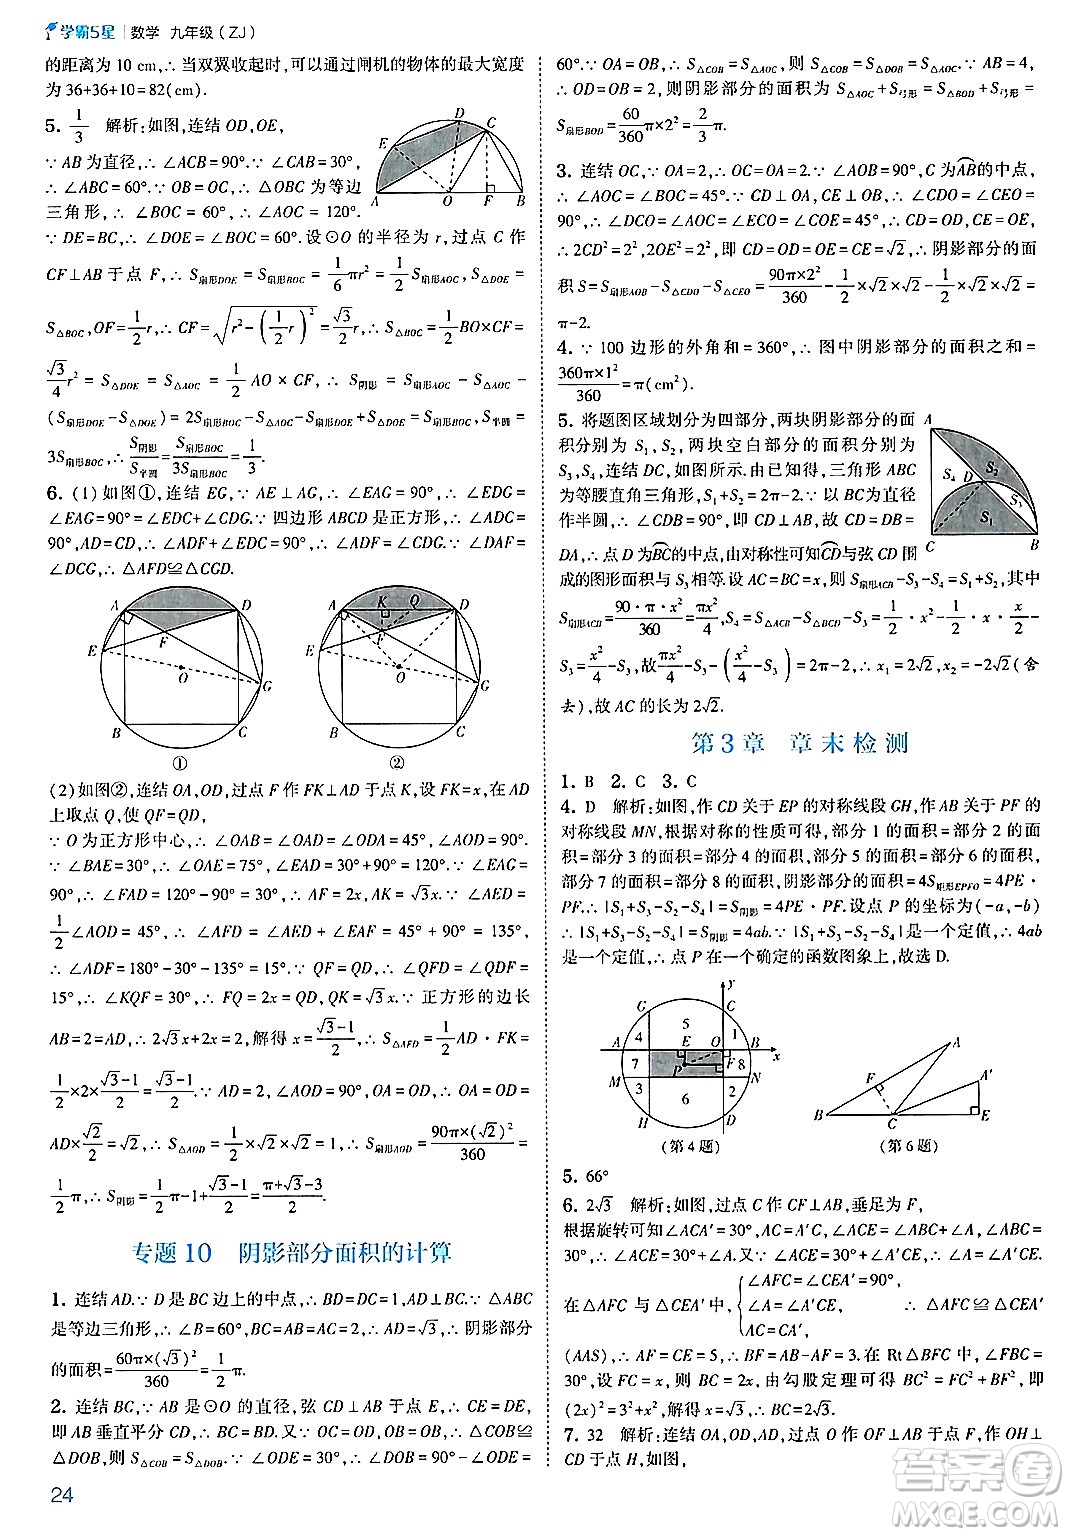 学霸5星 数学 九年级(ZJ)
的距离为 10 cm,∴ 当双翼收起时,可以通过闸机的物体的最大宽度
为 36+36+10=82(cm).
5. 1/3 解析:如图,连结 OD,OE,
∵ AB 为直径,∴ ∠ACB=90°.∵ ∠CAB=30°,
∴ ∠ABC=60°.∵ OB=OC,∴ △OBC 为等边
三角形,∴ ∠BOC=60°,∴ ∠AOC=120°.
∵ DE=BC,∴ ∠DOE=∠BOC=60°.设⊙O 的半径为 r,过点 C 作
CF⊥AB 于点 F,∴ S扇形DOE=S扇形BOC=1/6 πr²=1/2 S扇形AOC,S△DOE=
S△BOC,OF=1/2 r,∴ CF=√(r²-(1/2 r)²)=√3/2 r,∴ S△BOC=1/2 BO×CF=
√3/4 r²=S△DOE=S△AOC=1/2 AO×CF,∴ S阴影=S扇形AOC-S△AOC-
(S扇形DOE-S△DOE)=2S扇形BOC-S△AOC-S扇形DOE+S△DOE=S扇形BOC,S半圆=
3S扇形BOC,∴ S阴影/S半圆=S扇形BOC/3S扇形BOC=1/3.
6. (1) 如图①,连结 EG,∵ AE⊥AG,∴ ∠EAG=90°,∴ ∠EDG=
∠EAG=90°=∠EDC+∠CDG.∵ 四边形 ABCD 是正方形,∴ ∠ADC=
90°,AD=CD,∴ ∠ADF+∠EDC=90°,∴ ∠ADF=∠CDG.∵ ∠DAF=
∠DCG,∴ △AFD≌△CGD.
A D E F O G B C
A K Q D E F O G B C
① ②
(2) 如图②,连结 OA,OD,过点 F 作 FK⊥AD 于点 K,设 FK=x,在 AK
上取点 Q,使 QF=QD,
∵ O 为正方形中心,∴ ∠OAB=∠OAD=∠ODA=45°,∠AOD=90°.
∵ ∠BAE=30°,∴ ∠OAE=75°,∴ ∠EAD=120°.∵ ∠EAG=
90°,∴ ∠FAD=120°-90°=30°,∴ AF=2x,AK=√3x.∵ ∠AED=
1/2∠AOD=45°,∴ ∠AFD=∠AED+∠EAF=45°+90°=135°,
∴ ∠ADF=180°-30°-135°=15°.∵ QF=QD,∴ ∠QFD=∠QDF=
15°,∴ ∠KQF=30°,∴ FQ=2x=QD,QK=√3x.∵ 正方形的边长
AB=2=AD,∴ 2√3x+2x=2,解得 x=(√3-1)/2,∴ S△AFD=1/2 AD·FK=
1/2×2×(√3-1)/2=(√3-1)/2.∵ ∠AOD=90°,∠OAD=45°,∴ OA=OD=
AD×√2/2=√2,∴ S△AOD=1/2×√2×√2=1,∵ S扇形AOD=90π×(√2)²/360=
1/2 π,∴ S阴影=1/2 π-1+(√3-1)/2=(π+√3-3)/2.
专题 10 阴影部分面积的计算
1. 连结 AD.∵ D 是 BC 边上的中点,∴ BD=DC=1,AD⊥BC.∵ △ABC
是等边三角形,∴ ∠B=60°,BC=AB=AC=2,∴ AD=√3,∴ 阴影部分
的面积=60π×(√3)²/360=1/2 π.
2. 连结 BC,∵ AB 是⊙O 的直径,弦 CD⊥AB,∴ CE=DE,
即 AB 垂直平分 CD,又∵ OC=OD,OB=OB,∴ △COB≌
△DOB,∴ S△COB=S△DOB,∵ ∠BOD=90°-∠ODE=
60°.∵ OA=OB,∴ S△COB=S△AOC,则 S△AOC=S△DOB.∵ AB=4,
∴ OD=OB=2,则阴影部分的面积为 S△AOC+S弓形=S△BOD+S弓形=
S扇形BOD=60/360 π×2²=2/3 π.
3. 连结 OC,∵ OA=2,∴ OC=OA=2.∵ ∠AOB=90°,C 为AB的中点,
∴ ∠AOC=∠BOC=45°.∵ CD⊥OA,CE⊥OB,∴ ∠CDO=∠CEO=
90°,∴ ∠DCO=∠AOC=∠ECO=∠COE=45°,∴ CD=OD,CE=OE,
∴ 2CD²=2²,2OE²=2²,即 CD=OD=OE=CE=√2,∴ 阴影部分的面
积 S=S扇形AOB-S△CDO-S△CEO=90π×2²/360-1/2×√2×√2-1/2×√2×√2=
π-2.
4. ∵ 100 边形的外角和=360°,∴ 图中阴影部分的面积之和=
360π×1²/360=π(cm²).
5. 将题图区域划分为四部分,两块阴影部分的面
积分别为 S₁,S₂,两块空白部分的面积分别为
S₃,S₄,连结 DC,如图.由已知得,三角形 ABC
为等腰直角三角形,S₁+S₂=2π-2,∵ 以 BC为直径
作半圆,∴ ∠CDB=90°,∴ CD⊥AB,∴ DC=DB=
DA,∴ 点 D 为BC的中点,由对称性可知CD与弦 CD 围
成的图形面积与 S₃ 相等.设 AC=BC=x,则 S扇形ACB-S₃-S₄=S₁+S₂,∵
S扇形ACB=90·π·x²/360=πx²/4,S₄=S△ACB-S△BCD-S₃=1/2·x²-1/2·x·x/2-
S₃=x²/4-S₃,故πx²/4-S₃-(x²/4-S₃)=2π-2,∴ x₁=2√2,x₂=-2√2(舍
去),故 AC 的长为 2√2.
第 3 章 章末检测
1. B 2. C 3. C
4. D 解析:如图,作 CD 关于 EP 的对称线段 GH,作 AB 关于 PF 的
对称线段 MN,根据对称的性质可知,部分 1 的面积=部分 2 的面
积=部分 3 的面积=部分 4 的面积,部分 5 的面积=部分 6 的面积,
部分 7 的面积=部分 8 的面积,阴影部分的面积=4S矩形EPFO=4PE·
PF.∴ |S₁+S₃-S₂-S₄|=S阴影=4PE·PF.设点 P 的坐标为(-a,-b)
∴ |S₁+S₃-S₂-S₄|=S阴影=4ab.∵ |S₁+S₃-S₂-S₄|是一个定值,∴ 4ab
是一个定值,∴ 点 P 在一个确定的函数图象上,故选 D.
(第 4 题) (第 6 题)
5. 66°
6. 2√3 解析:如图,过点 C 作 CF⊥AB,垂足为 F,
根据旋转可知∠ACA′=30°,∵ ∠ACE=∠B+∠A=30°+∠A,
∠ACE=∠ACA′+∠A′CE=30°+∠A′CE,∴ ∠A=∠A′CE.
在△AFC 与△CEA′中,{∠AFC=∠CEA′=90°, ∠A=∠A′CE, AC=CA′, ∴ △AFC≌△CEA′
(AAS),∴ AF=CE=5,∴ BF=AB-AF=3.在 Rt△BFC 中,∠FBC=
30°,∴ 设 CF=x,则 BC=2x,由勾股定理可得 BC²=CF²+BF²,即
(2x)²=3²+x²,解得 x=√3(负值舍去),∴ BC=2x=2√3.
7. 32 解析:连结 OA,OD,AD,过点 O 作 OF⊥AD 于点 F,作 OH⊥
CD 于点 H,如图,
24
答案圈
MXQE.COM